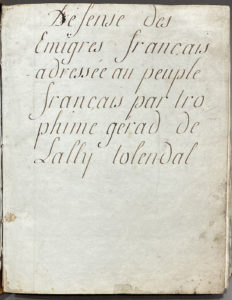 Défense des
Emigrés français
adressée au peuple
français par tro
phime gérad de
Lally tolendal